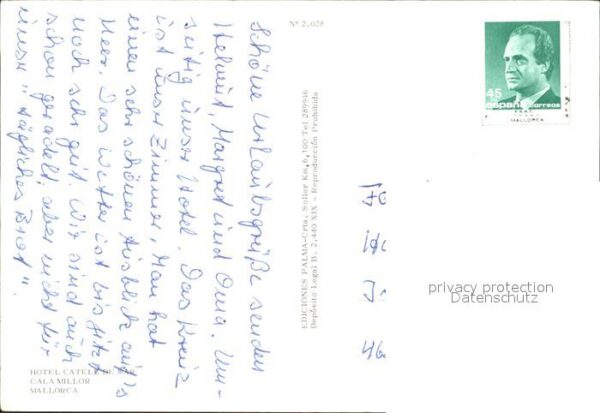 Schöne Urlaubsgrüße senden
Helmut, Margret und Oma. Um-
seitig unser Hotel. Das Kreuz
ist unser Zimmer, Man hat
einen sehr schönen Ausblick auf's
Meer. Das Wetter ist bis jetzt
noch sehr gut. Wir sind auch
schon geradelt, aber nicht für
unser "tägliches Brot".
HOTEL CATELL DE MAR
CALA MILLOR
MALLORCA
Nº 2.028
EDICIONES PALMA-Crta. Soller Km, 6,100 Tel 289946
Depósito Legal B. 2.440 XIX - Reproducción Prohibida
45
españa correos
MALLORCA
privacy protection
Datenschutz